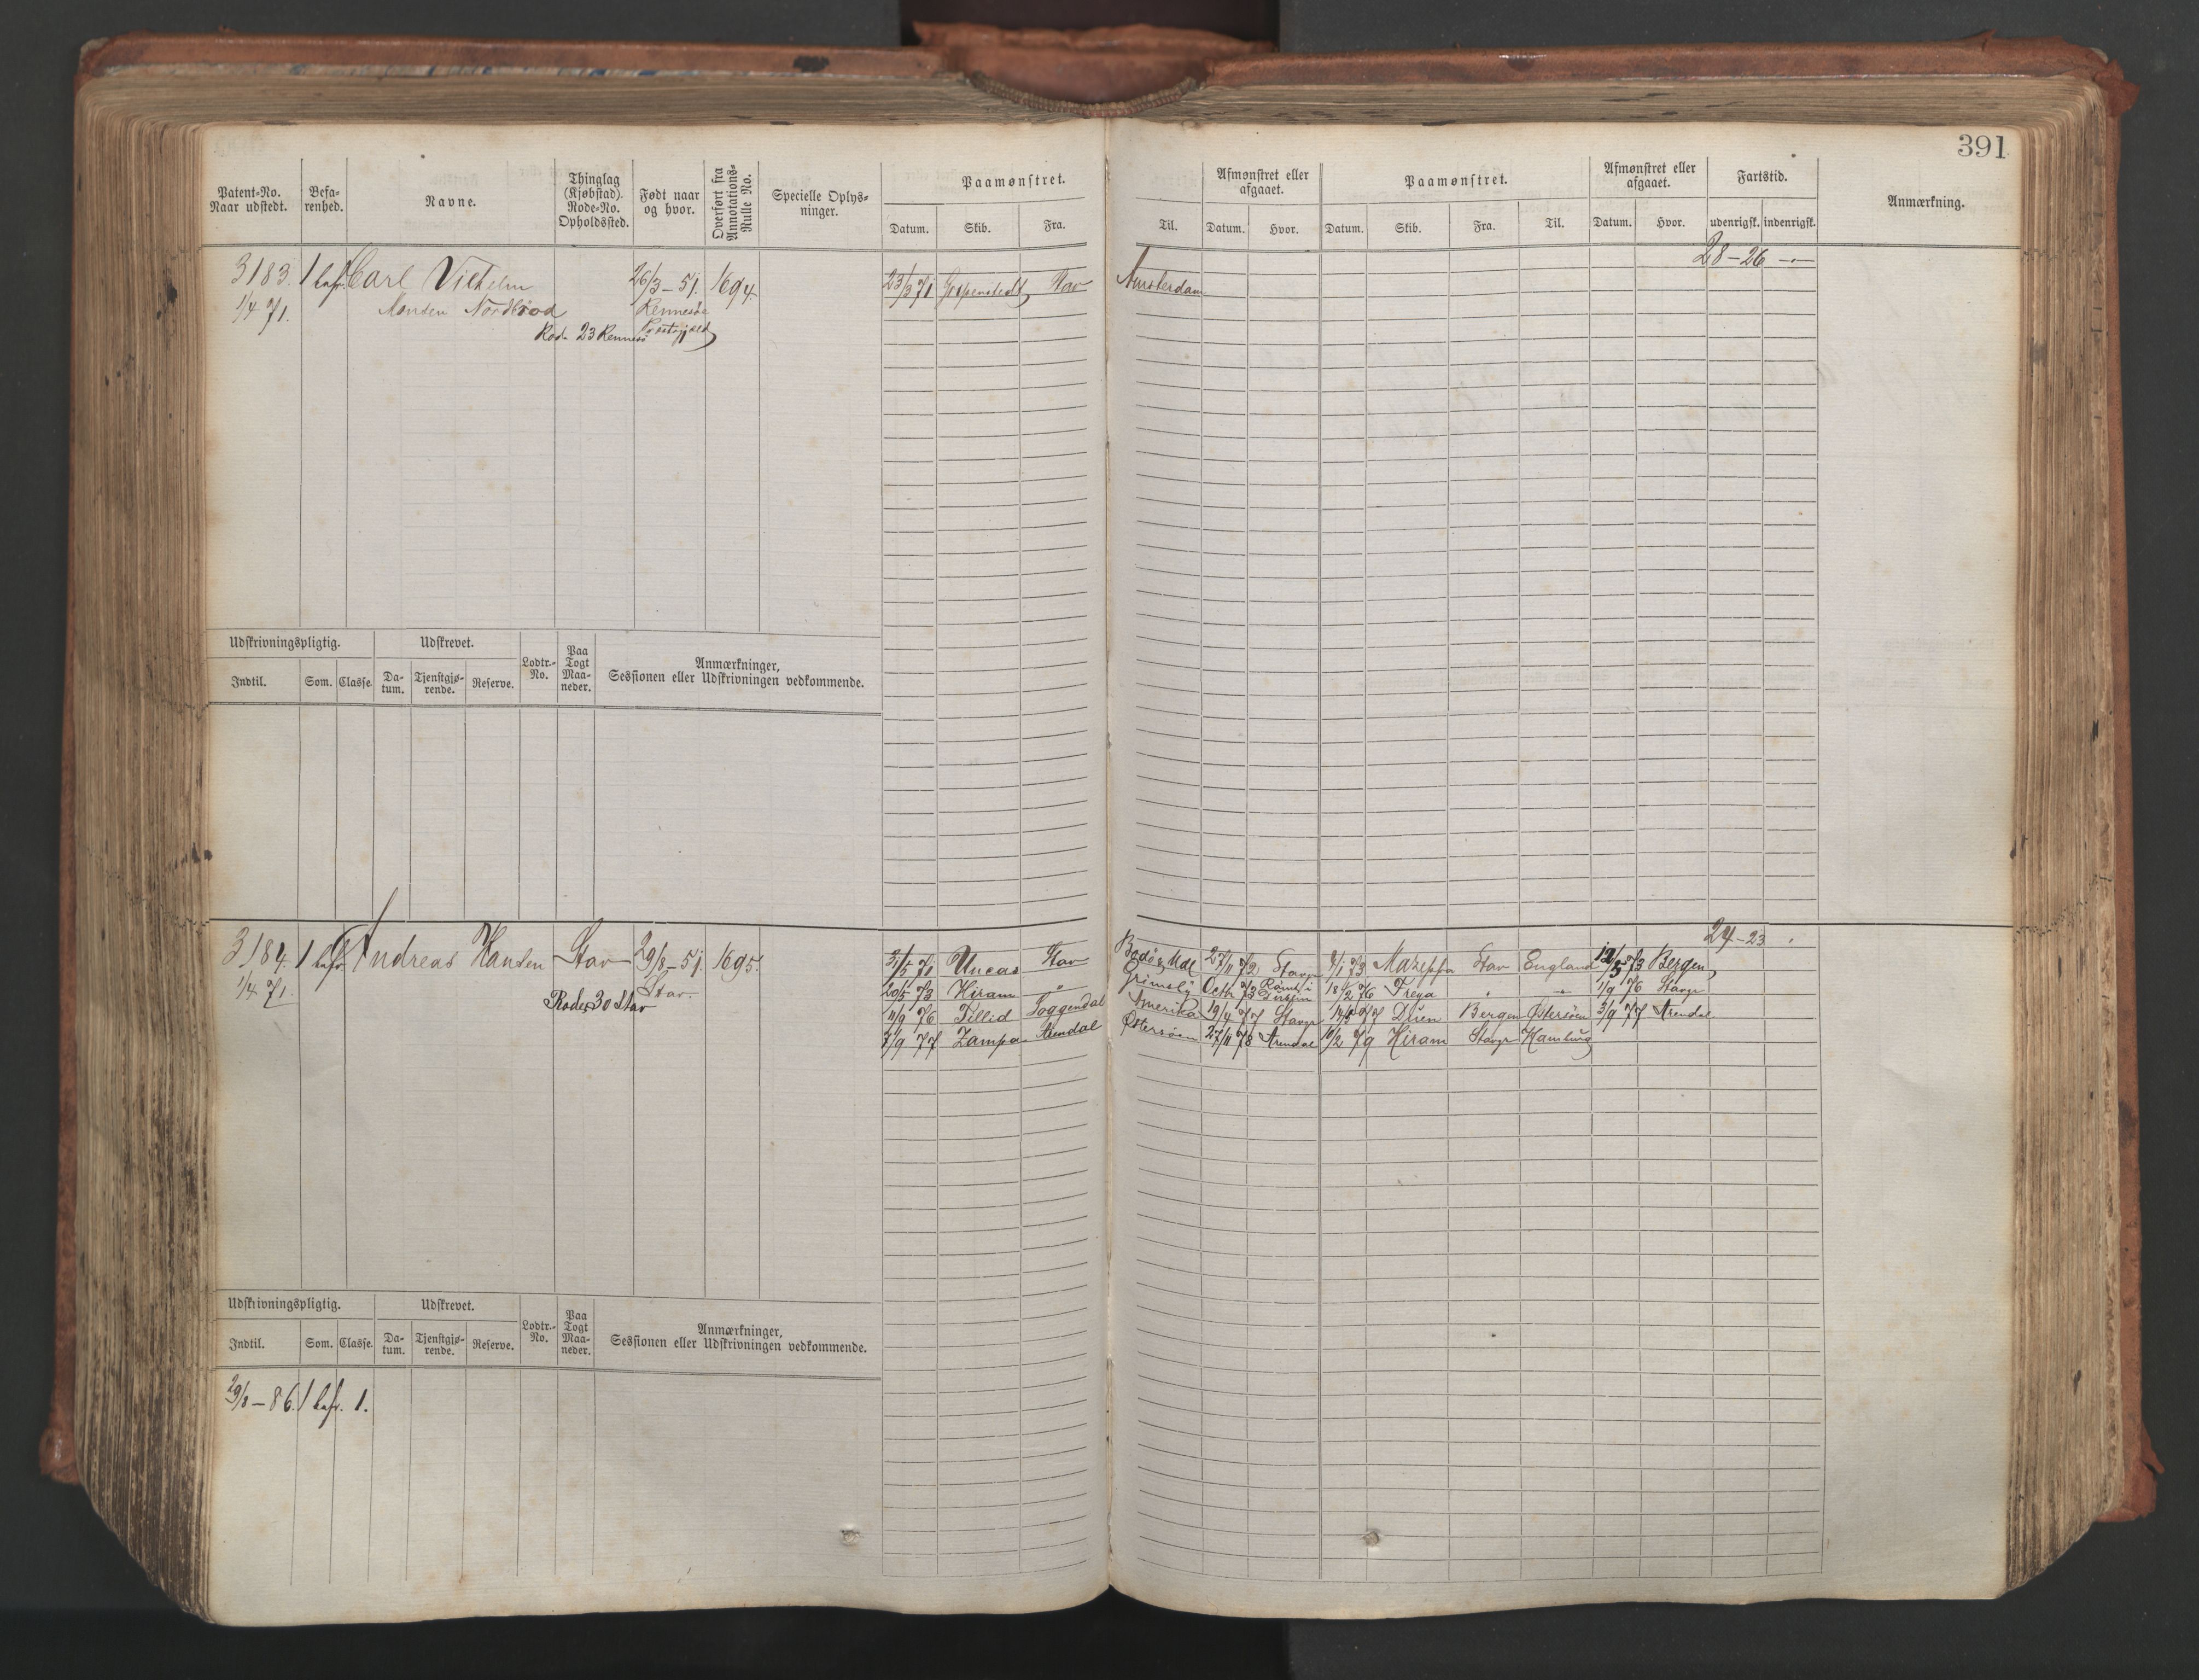 391
Patent-No. Naar udstedt.
Befa-renhed.
Navne.
Thinglag (Kjøbstad). Rode-No. Opholdssted.
Født naar og hvor.
Overført fra Annotations-Rulle No.
Specielle Oplys-ninger.
Paamønstret.
Datum. Skib. Fra. Til.
Afmønstret eller afgaaet.
Datum. Hvor.
Paamønstret.
Datum. Skib. Fra. Til.
Afmønstret eller afgaaet.
Datum. Hvor.
Fartstid.
udenrigsk. indenrigsk.
Anmærkning.
28-26 -
3183. 1 bef. Carl Vilhelm 26/3-51. 1694. 23/3 71 Stav Amsterdam
1/4 71. Nordbrod Rennesø
Rod. 23 Rennesø Præstegjeld
Udskrivningspligtig. Udskrevet. Lodtr.-No. Paa Togt Maa-neder. Anmærkninger, Sessionen eller Udskrivningen vedkommende.
Indtil. Som. Classe. Da-tum. Tjenstgjø-rende. Reserve.
24-23
3184. 1 bef. Andreas Hansen Stav 29/8-51. 1695. 31/5 71 Uncas Stav Bodö & Udl 27/11 72 Stavgr 8/1 73 Mazeppa Stav England 12/5 73 Bergen
1/4 71. Stav. 20/5 73 Hiram " Grimsby Octb 73 Rømt i 18/2 76 Freya " " 1/9 76 Stavgr
Rode 30 Stav 11/9 76 Fillid Soggendal Amerika 19/4 77 Stavgr 14/5 77 Duen Bergen Østersøen 3/9 77 Arendal
7/9 77 Zampa Arendal Østersøen 27/11 78 Arendal 10/2 79 Hiram Stavgr Hamburg
Udskrivningspligtig. Udskrevet. Lodtr.-No. Paa Togt Maa-neder. Anmærkninger, Sessionen eller Udskrivningen vedkommende.
Indtil. Som. Classe. Da-tum. Tjenstgjø-rende. Reserve.
29/8-86. 1 bef. 1.